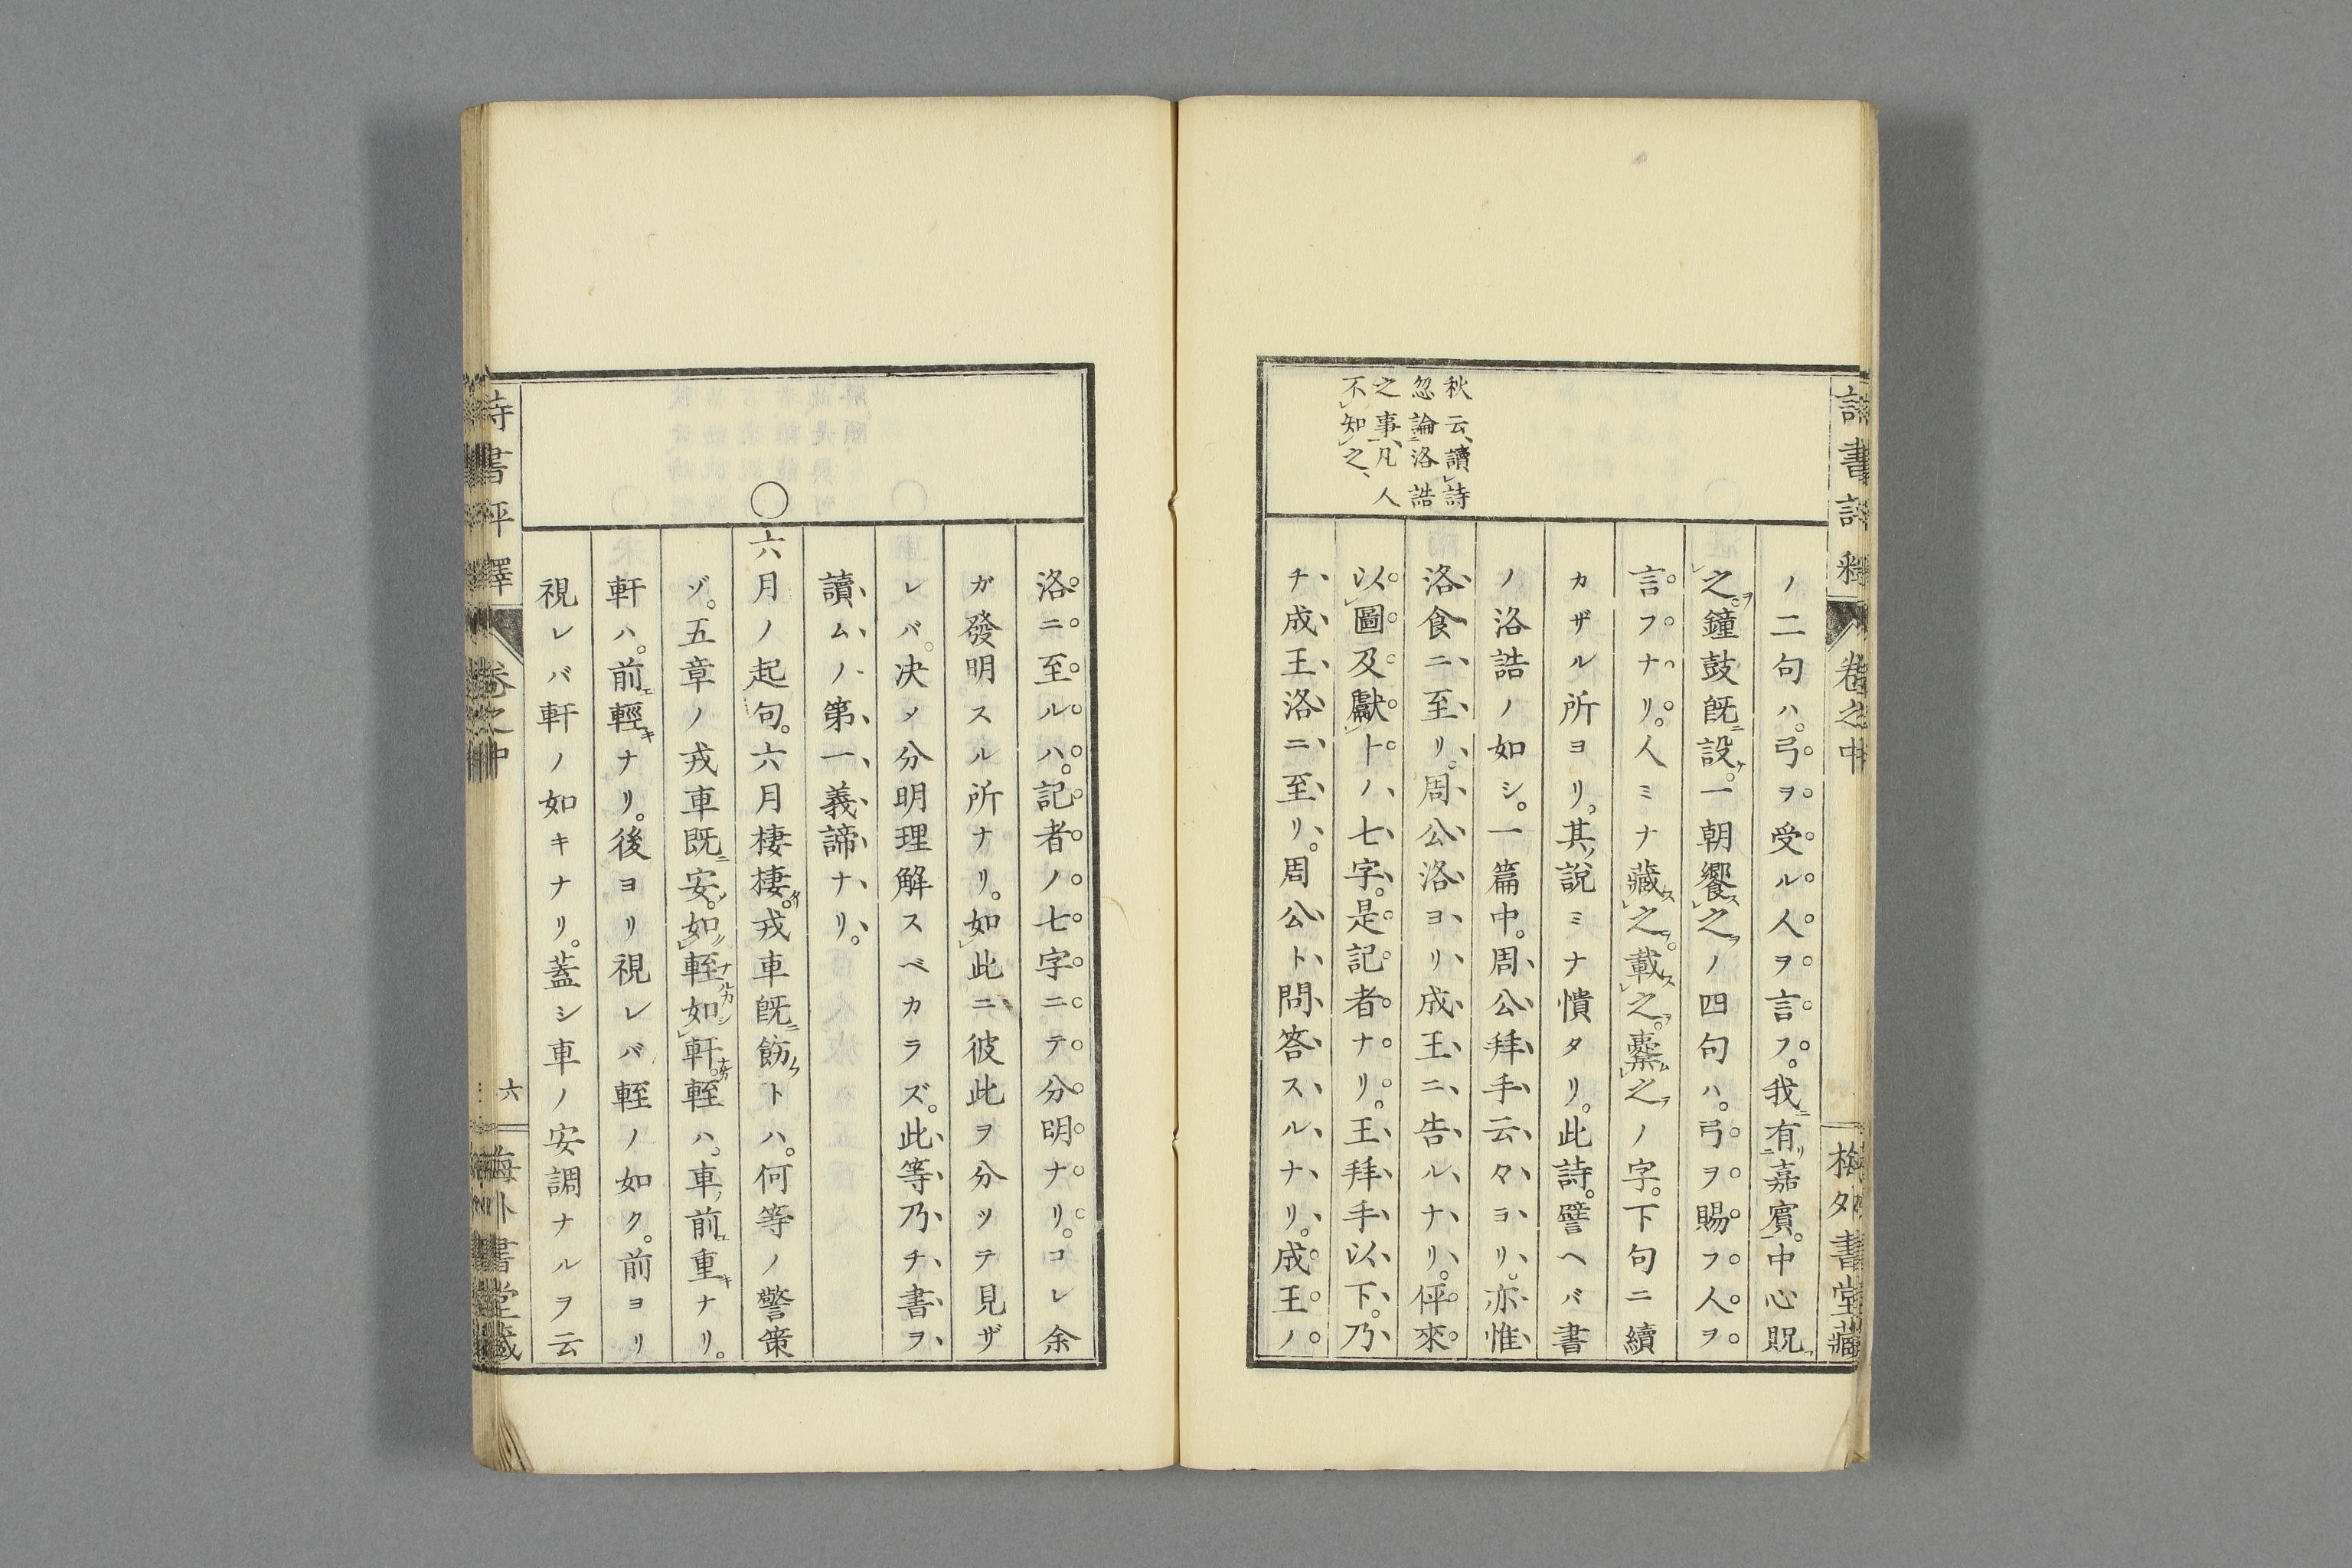 詩書評釋
卷之中
梅外書堂藏
秋云、讀詩
忽論洛誥
之事、凡人
不知之、
ノ二句ハ。弓ヲ受ル人ヲ言フ。我有嘉賓。中心貺
之。鐘鼓旣設。一朝饗之ノ四句ハ。弓ヲ賜フ人ヲ
言フナリ。人ミナ藏之。載之。櫜之ノ字。下句ニ續
カザル所ヨリ。其說ミナ憒タリ。此詩。譬ヘバ書
ノ洛誥ノ如シ。一篇中。周公拜手云々ヨリ。亦惟
洛食ニ至リ。周公洛ヨリ成王ニ告ルナリ。伻來
以圖及獻卜ノ七字。是記者ナリ。王拜手以下。乃
チ成王洛ニ至リ。周公ト問答スルナリ。成王ノ
洛ニ至ルハ。記者ノ七字ニテ分明ナリ。コレ余
ガ發明スル所ナリ。如此ニ彼此ヲ分ツテ見ザ
レバ。決メ分明理解スベカラズ。此等乃チ書ヲ
讀ムノ第一義諦ナリ。
○六月ノ起句。六月棲棲。戎車旣飭トハ。何等ノ警策
ゾ。五章ノ戎車既安。如輊如軒。輊ハ。車前重ナリ。
軒ハ。前輕ナリ。後ヨリ視レバ輊ノ如ク。前ヨリ
視レバ軒ノ如キナリ。蓋シ車ノ安調ナルヲ云
詩書評釋
卷之中
六
梅外書堂藏